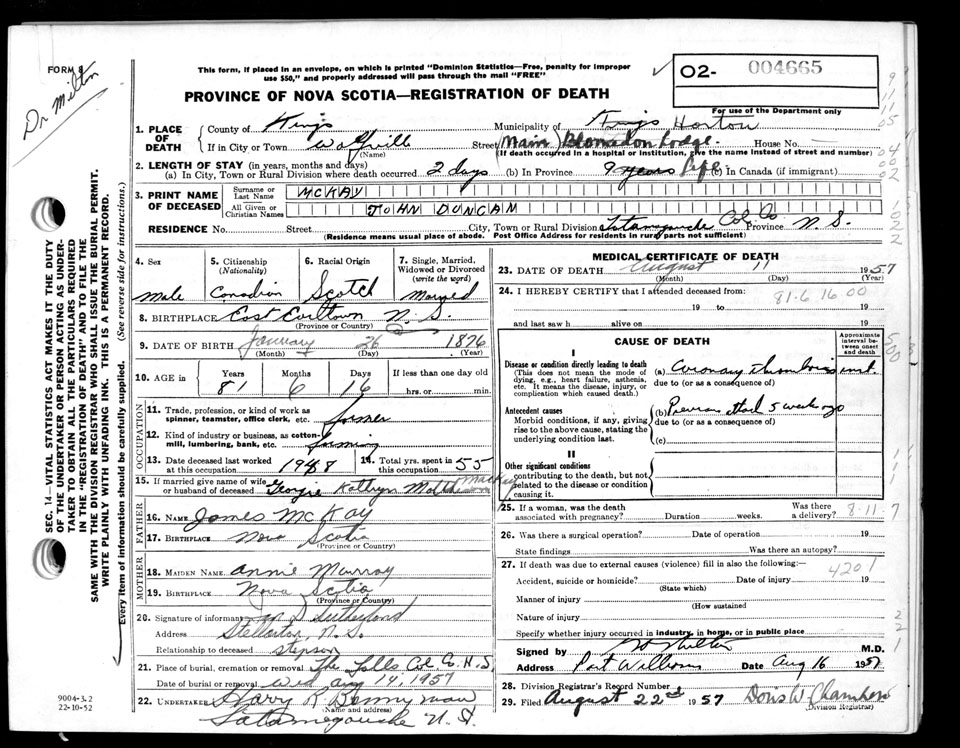 FORM 8
Dr Milton
This form, if placed in an envelope, on which is printed "Dominion Statistics—Free, penalty for improper
use $50," and properly addressed will pass through the mail "FREE"
PROVINCE OF NOVA SCOTIA—REGISTRATION OF DEATH
02- 004665
For use of the Department only
1. PLACE OF DEATH
County of Kings Municipality of Kings Horton
If in City or Town Wolfville Street Main Blomidon Lodge House No.
(Name) (If death occurred in a hospital or institution, give the name instead of street and number)
2. LENGTH OF STAY (in years, months and days)
(a) In City, Town or Rural Division where death occurred 2 days (b) In Province 9 years life (c) In Canada (if immigrant)
3. PRINT NAME OF DECEASED
Surname or Last Name MCKAY
All Given or Christian Names JOHN DUNCAN
RESIDENCE No. Street City, Town or Rural Division Tatamagouche Col. Co. Province N.S.
(Residence means usual place of abode. Post Office Address for residents in rural parts not sufficient)
4. Sex Male
5. Citizenship (Nationality) Canadian
6. Racial Origin Scotch
7. Single, Married, Widowed or Divorced (write the word) Married
8. BIRTHPLACE East Earltown N.S.
(Province or Country)
9. DATE OF BIRTH January 26 1876
(Month) (Day) (Year)
10. AGE in Years 81 Months 6 Days 16 If less than one day old
hrs. or min.
OCCUPATION
11. Trade, profession or kind of work as
spinner, teamster, office clerk, etc. farmer
12. Kind of industry or business, as cotton-
mill, lumbering, bank, etc. farming
13. Date deceased last worked at this occupation 1948
14. Total yrs. spent in this occupation 55
15. If married give name of wife
or husband of deceased Georgie Kathryn MacKay
FATHER
16. NAME James McKay
17. BIRTHPLACE Nova Scotia
(Province or Country)
MOTHER
18. MAIDEN NAME Annie Murray
19. BIRTHPLACE Nova Scotia
(Province or Country)
20. Signature of informant Sutherland
Address Stellarton, N.S.
Relationship to deceased stepson
21. Place of burial, cremation or removal The Falls Col. Co. N.S.
Date of burial or removal Wed Aug 14, 1957
22. UNDERTAKER Harry R Bonnyman
(Name and address)
Tatamagouche N.S.
MEDICAL CERTIFICATE OF DEATH
23. DATE OF DEATH August 11 1957
(Month) (Day) (Year)
24. I HEREBY CERTIFY that I attended deceased from:
81-6 16.00
19 to 19
and last saw h alive on 19
CAUSE OF DEATH
Approximate interval between onset and death
I
Disease or condition directly leading to death
(This does not mean the mode of dying, e.g., heart failure, asthenia, etc. It means the disease, injury, or complication which caused death.
(a) Coronary thrombosis inst.
due to (or as a consequence of)
Antecedent causes
Morbid conditions, if any, giving rise to the above cause, stating the underlying condition last.
(b) Previous attack 5 weeks ago
due to (or as a consequence of)
(c)
II
Other significant conditions
contributing to the death, but not related to the disease or condition causing it.
25. If a woman, was the death associated with pregnancy? Duration weeks. Was there a delivery?
8-11-7
26. Was there a surgical operation? Date of operation 19
State findings Was there an autopsy?
27. If death was due to external causes (violence) fill in also the following:
4201
Accident, suicide or homicide? Date of injury 19
(State which)
Manner of injury
(How sustained
Nature of injury
Specify whether injury occurred in industry, in home, or in public place
Signed by Milton M.D.
Address Port Williams Date Aug 16 1957
28. Division Registrar's Record Number
29. Filed August 22nd 1957 Doris W. Chambers
(Division Registrar)
SEC. 14—VITAL STATISTICS ACT MAKES IT THE DUTY
OF THE UNDERTAKER OR PERSON ACTING AS UNDER-
TAKER TO OBTAIN ALL THE PARTICULARS REQUIRED
IN THE "REGISTRATION OF DEATH" AND TO FILE THE
SAME WITH THE DIVISION REGISTRAR WHO SHALL ISSUE THE BURIAL PERMIT.
WRITE PLAINLY WITH UNFADING INK. THIS IS A PERMANENT RECORD.
Every item of information should be carefully supplied. (See reverse side for instructions.)
9004-3.2
22-10-52